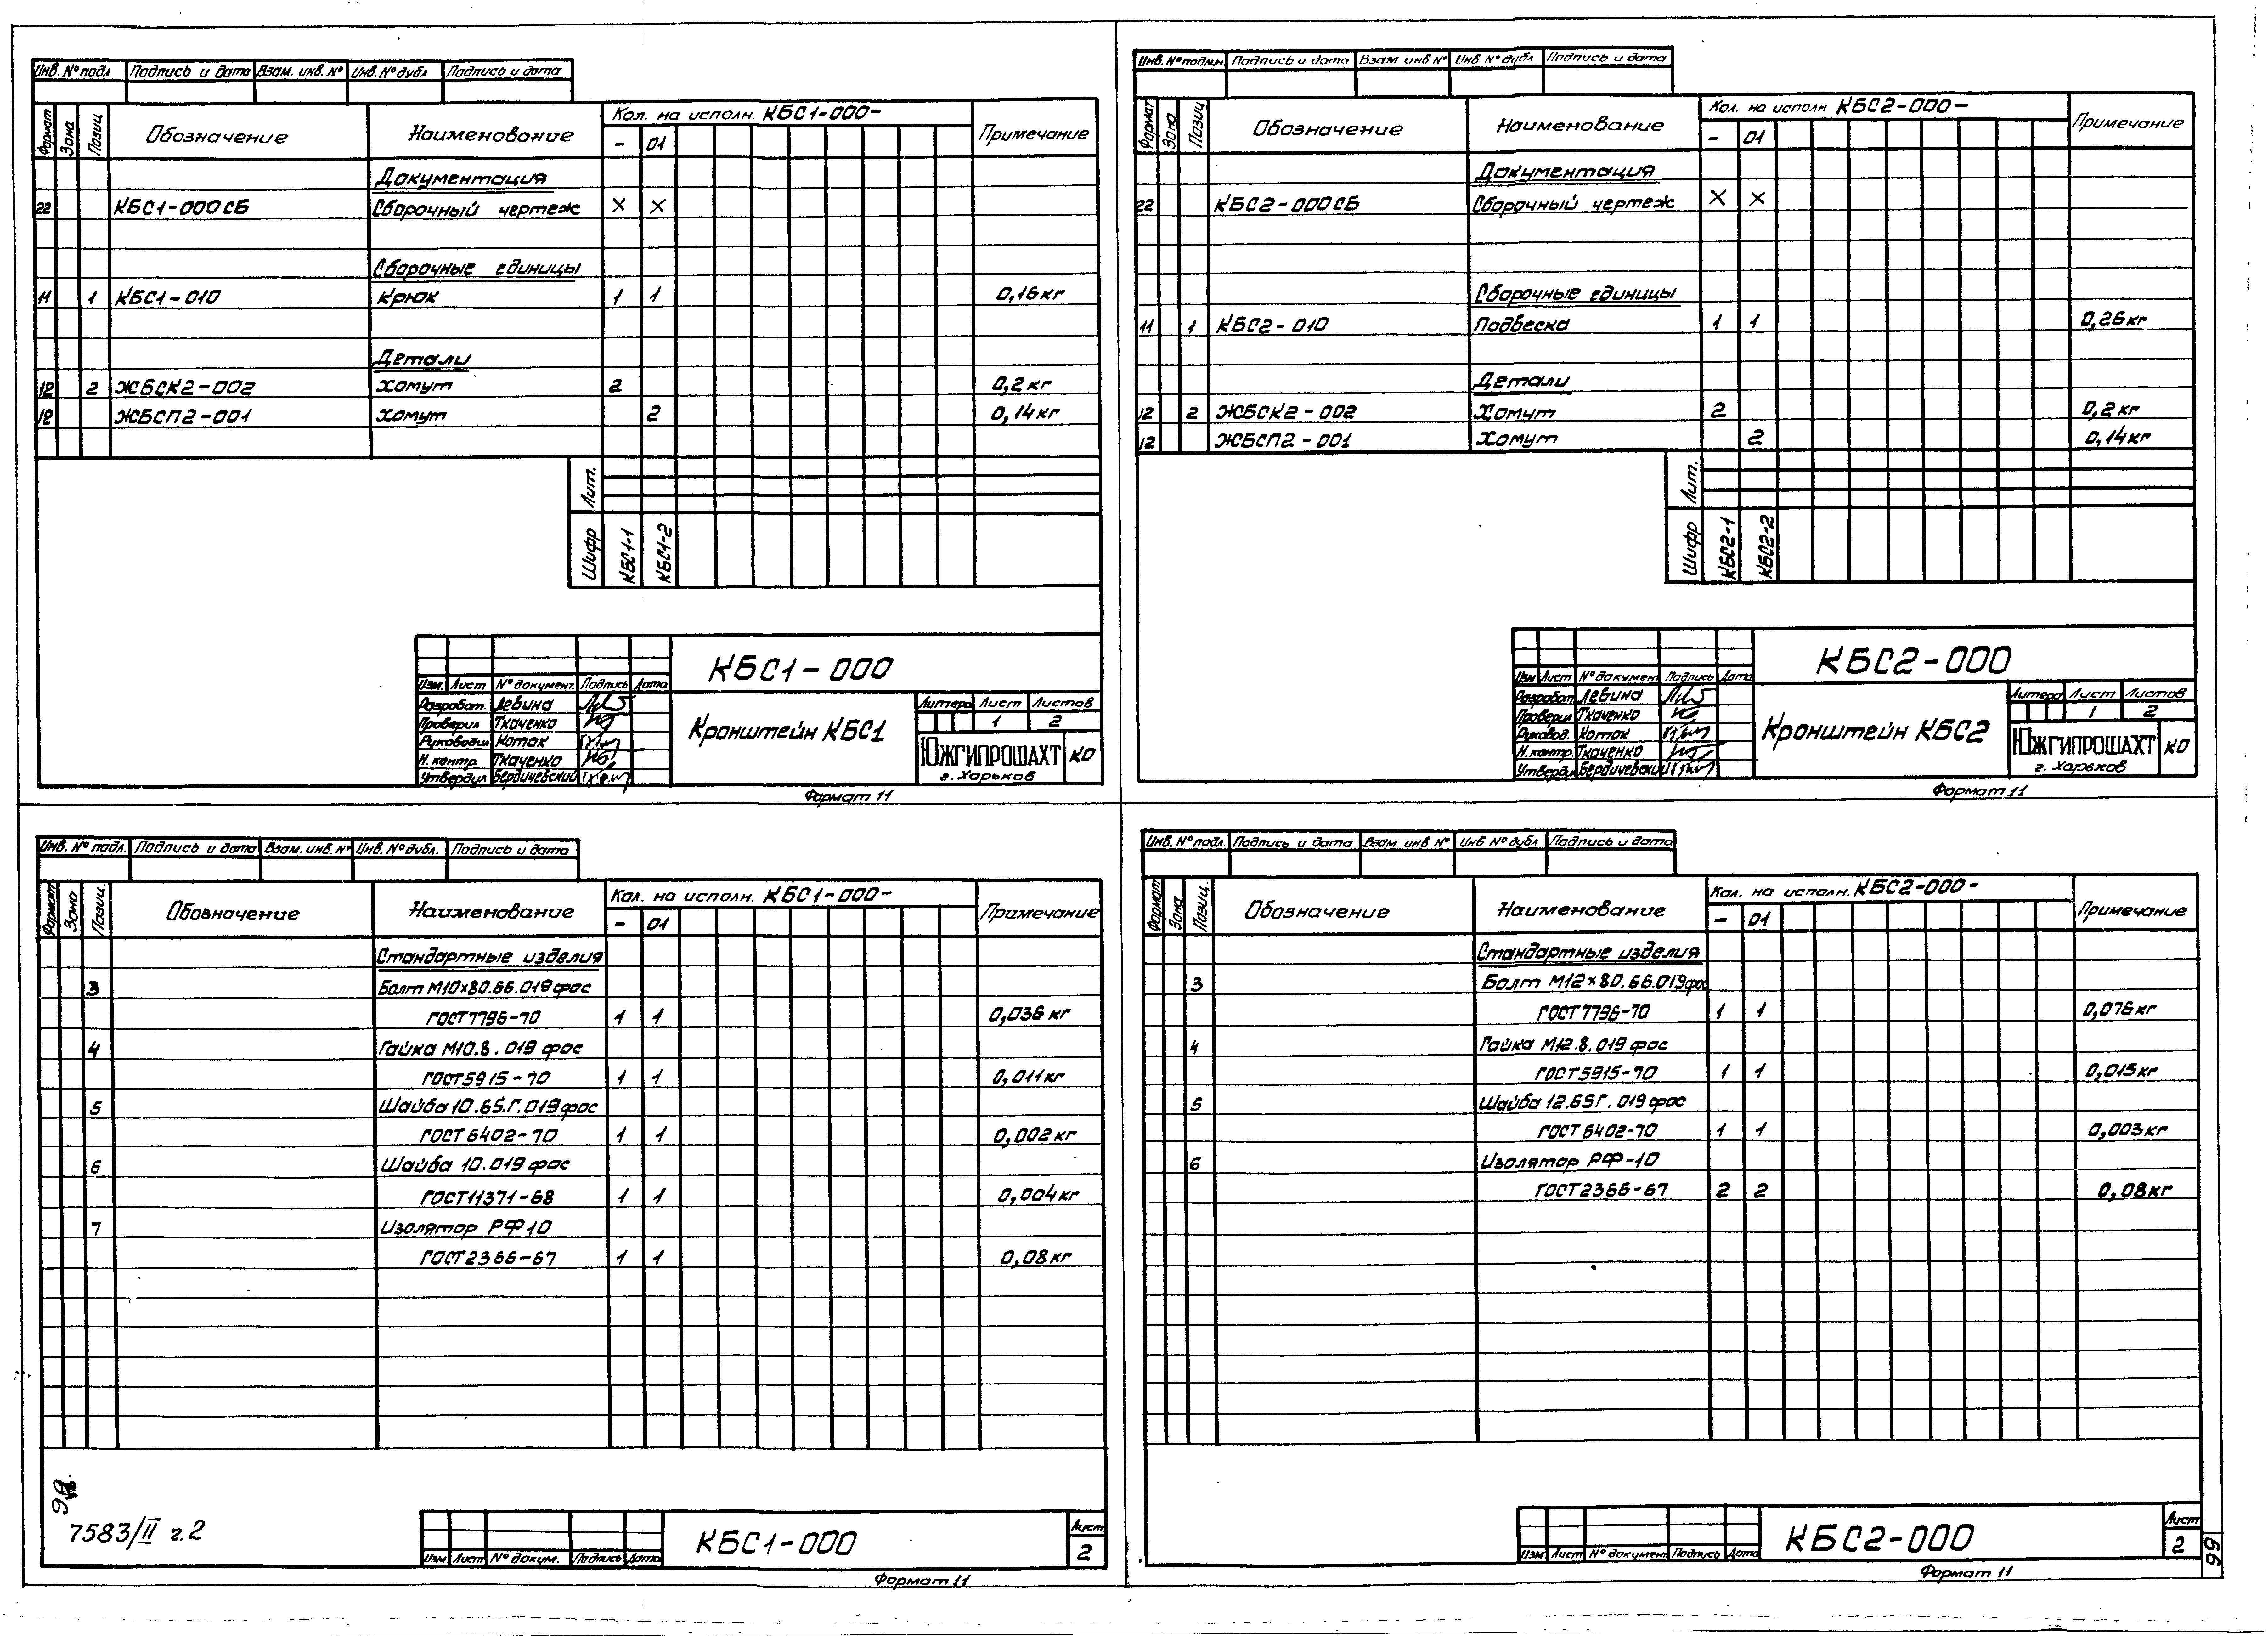 Инв. № подл Подпись и дата Взам. инв. № Инв. № дубл Подпись и дата
Формат Зона Позиц Обозначение Наименование Кол. на исполн. КБС1-000- Примечание
- 01
Документация
22 КБС1-000СБ Сборочный чертеж × ×
Сборочные единицы
11 1 КБС1-010 Крюк 1 1 0,16кг
Детали
12 2 ЖБСК2-002 Хомут 2 0,2кг
12 ЖБСП2-001 Хомут 2 0,14кг
Лит.
Шифр КБС1-1 КБС1-2
КБС1-000
Изм. Лист № документ. Подпись Дата
Разработ. Левина
Проверил Ткаченко
Руководил Коток
Н. контр. Ткаченко
Утвердил Бердичевский
Кронштейн КБС1
Литера Лист Листов
1 2
ЮЖГИПРОШАХТ КО
г. Харьков
Формат 11
Инв. № подлин Подпись и дата Взам инв № Инв № дубл Подпись и дата
Формат Зона Позиц Обозначение Наименование Кол. на исполн КБС2-000- Примечание
- 01
Документация
22 КБС2-000СБ Сборочный чертеж × ×
Сборочные единицы
11 1 КБС2-010 Подвеска 1 1 0,26кг
Детали
12 2 ЖБСК2-002 Хомут 2 0,2кг
12 ЖБСП2-001 Хомут 2 0,14кг
Лит.
Шифр КБС2-1 КБС2-2
КБС2-000
Изм Лист № документ Подпись Дата
Разработ. Левина
Проверил Ткаченко
Руковод. Коток
Н. контр. Ткаченко
Утвердил Бердичевский
Кронштейн КБС2
Литера Лист Листов
1 2
ЮЖГИПРОШАХТ КО
г. Харьков
Формат 11
Инв. № подл. Подпись и дата Взам. инв. № Инв. № дубл. Подпись и дата
Формат Зона Позиц. Обозначение Наименование Кол. на исполн. КБС1-000- Примечание
- 01
Стандартные изделия
3 Болт М10×80.66.019 фос
ГОСТ7796-70 1 1 0,036 кг
4 Гайка М10.8.019 фос
ГОСТ5915-70 1 1 0,011кг
5 Шайба 10.65.Г.019 фос
ГОСТ 6402-70 1 1 0,002 кг
6 Шайба 10.019 фос
ГОСТ11371-68 1 1 0,004кг
7 Изолятор РФ10
ГОСТ2366-67 1 1 0,08кг
7583/II г.2
КБС1-000
Лист
2
Изм Лист № докум. Подпись Дата
Формат 11
Инв. № подл. Подпись и дата Взам инв № Инв № дубл Подпись и дата
Формат Зона Позиц. Обозначение Наименование Кол. на исполн. КБС2-000- Примечание
- 01
Стандартные изделия
3 Болт М12×80.66.019фос
ГОСТ7796-70 1 1 0,076кг
4 Гайка М12.8.019 фос
ГОСТ5915-70 1 1 0,015кг
5 Шайба 12.65Г.019 фос
ГОСТ 6402-70 1 1 0,003кг
6 Изолятор РФ-10
ГОСТ2366-67 2 2 0,08кг
КБС2-000
Лист
2
Изм Лист № документ Подпись Дата
Формат 11
66